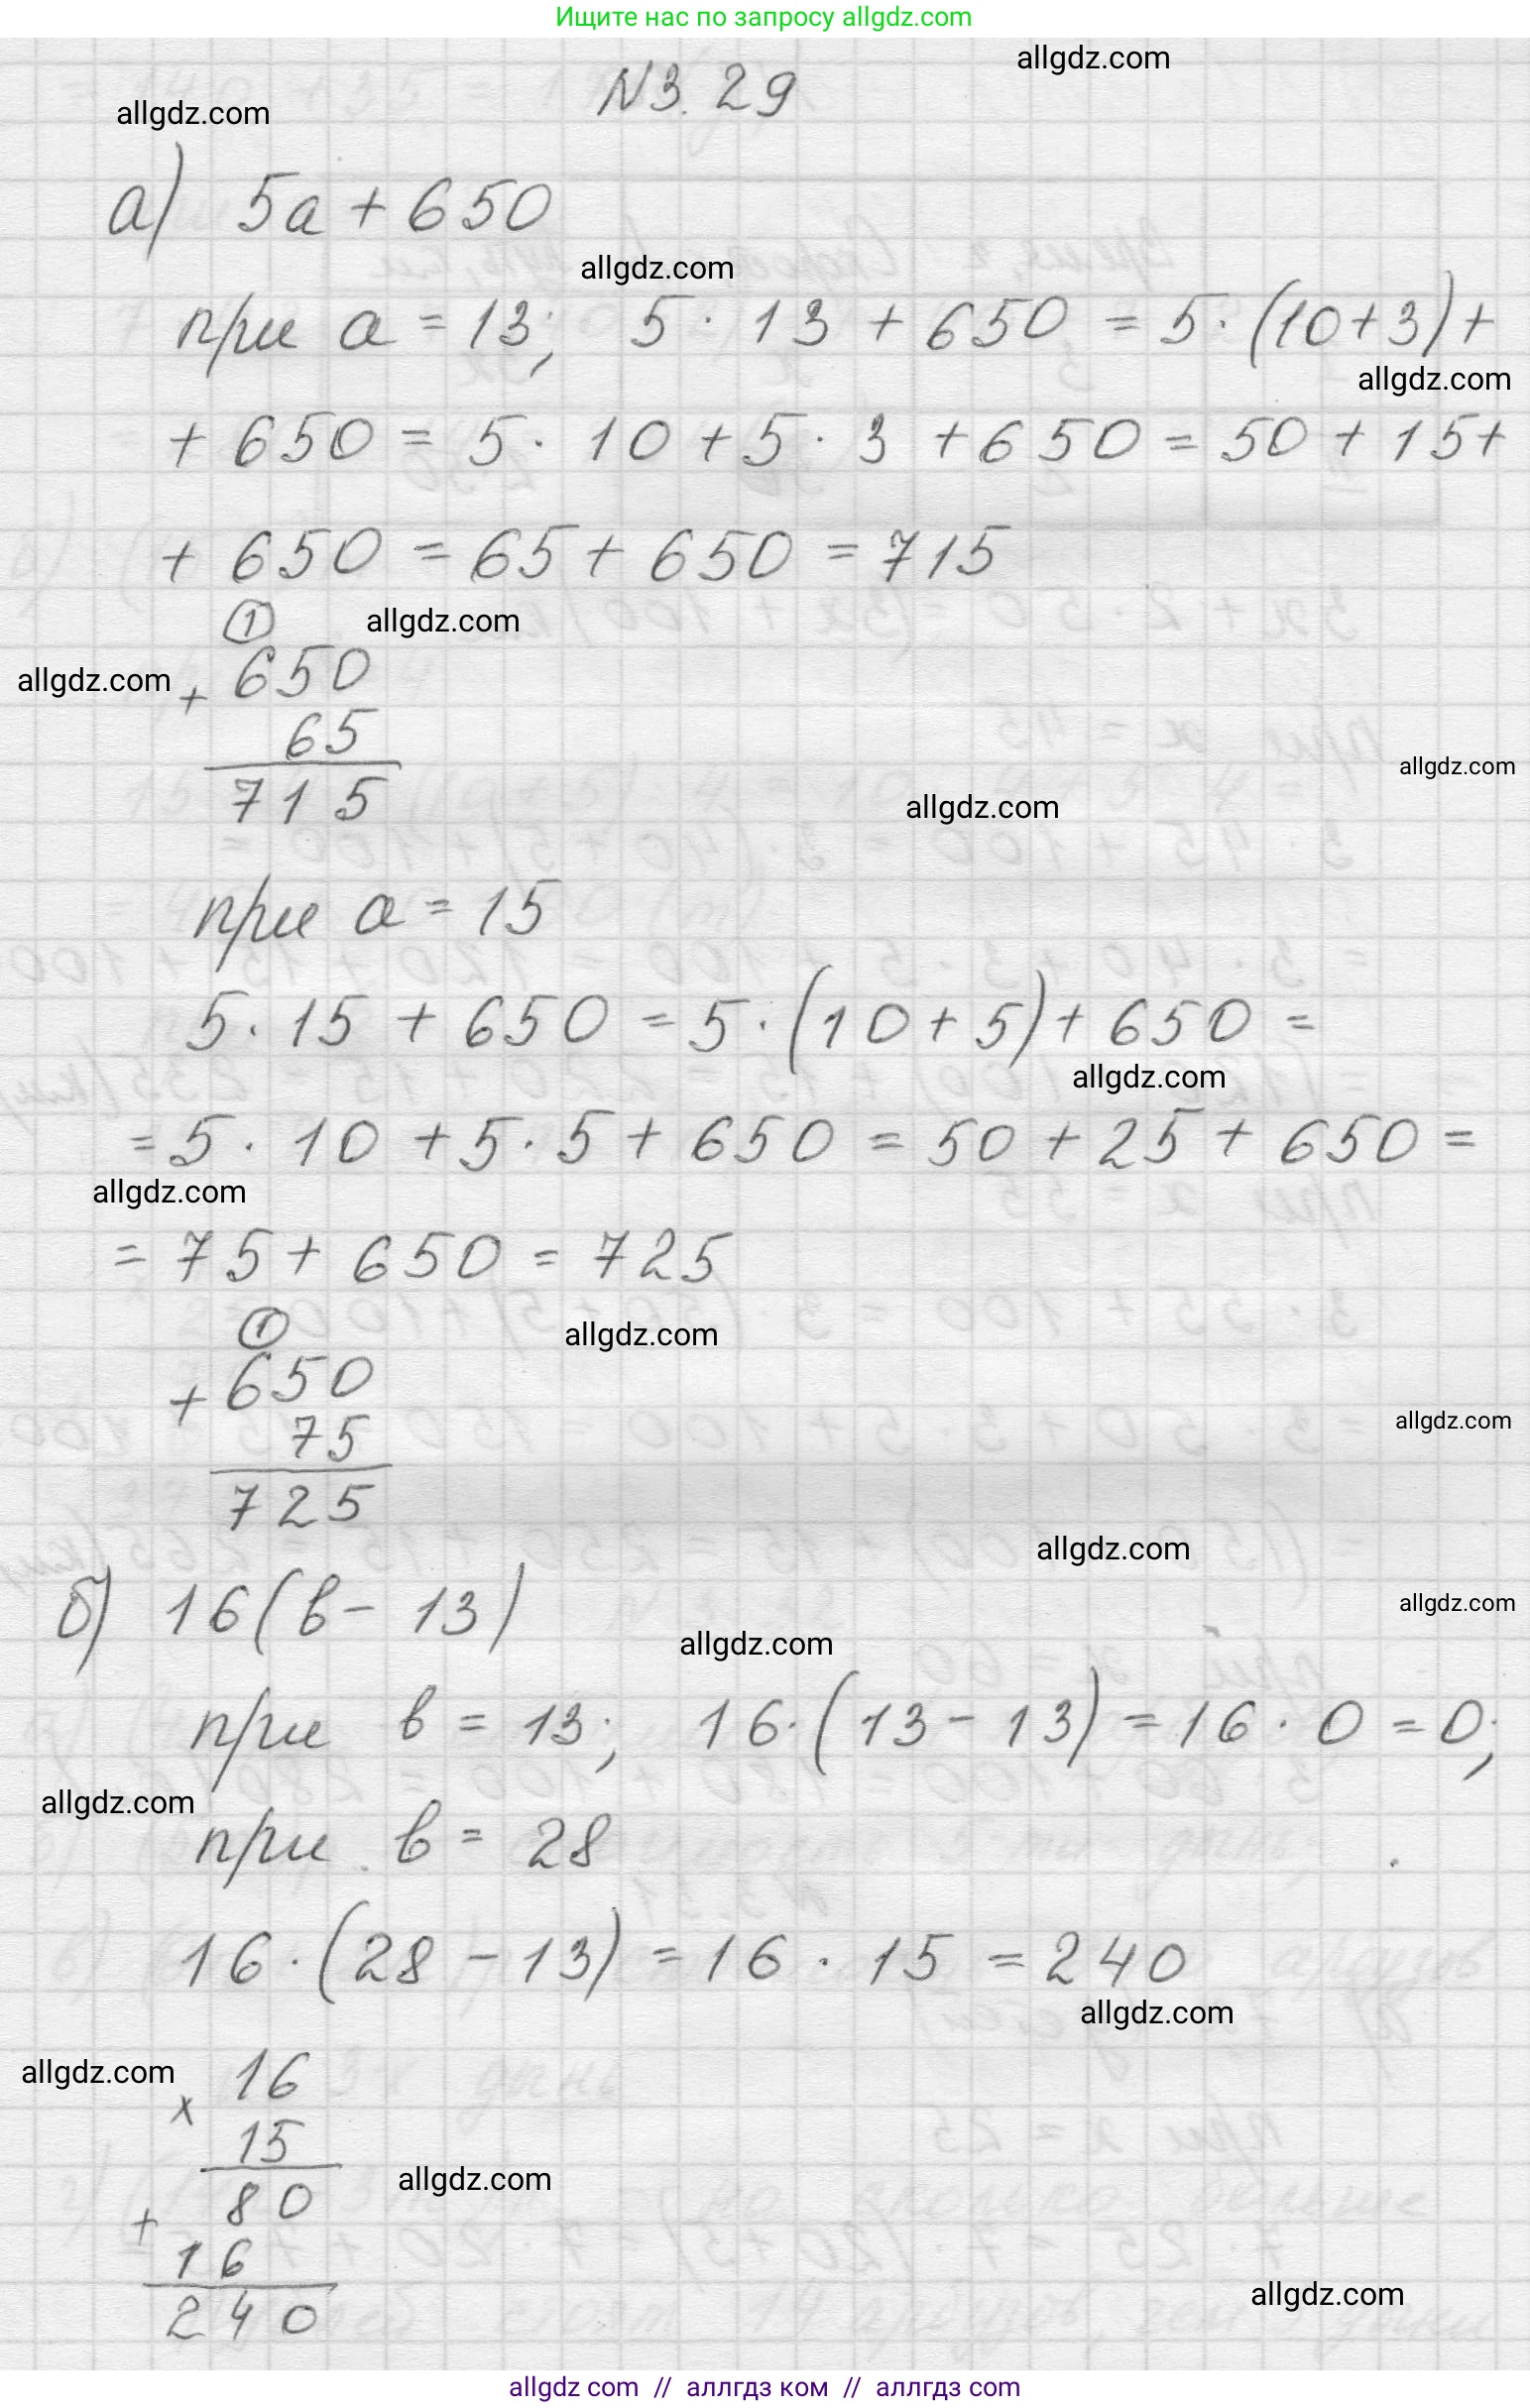 Ищите нас по запросу allgdz.com
allgdz.com
N3.29
allgdz.com
а) 5a + 650
allgdz.com
при a = 13; 5 · 13 + 650 = 5 · (10 + 3) +
allgdz.com
+ 650 = 5 · 10 + 5 · 3 + 650 = 50 + 15 +
+ 650 = 65 + 650 = 715
1
allgdz.com
allgdz.com
+ 650
65
715
allgdz.com
allgdz.com
при a = 15
5 · 15 + 650 = 5 · (10 + 5) + 650 =
allgdz.com
= 5 · 10 + 5 · 5 + 650 = 50 + 25 + 650 =
allgdz.com
= 75 + 650 = 725
1
allgdz.com
+ 650
75
725
allgdz.com
allgdz.com
б) 16(b - 13)
allgdz.com
allgdz.com
при b = 13; 16 · (13 - 13) = 16 · 0 = 0;
allgdz.com
при b = 28
16 · (28 - 13) = 16 · 15 = 240
allgdz.com
allgdz.com
× 16
15
80
allgdz.com
+ 16
240
allgdz.com
allgdz com // аллгдз ком // аллгдз com